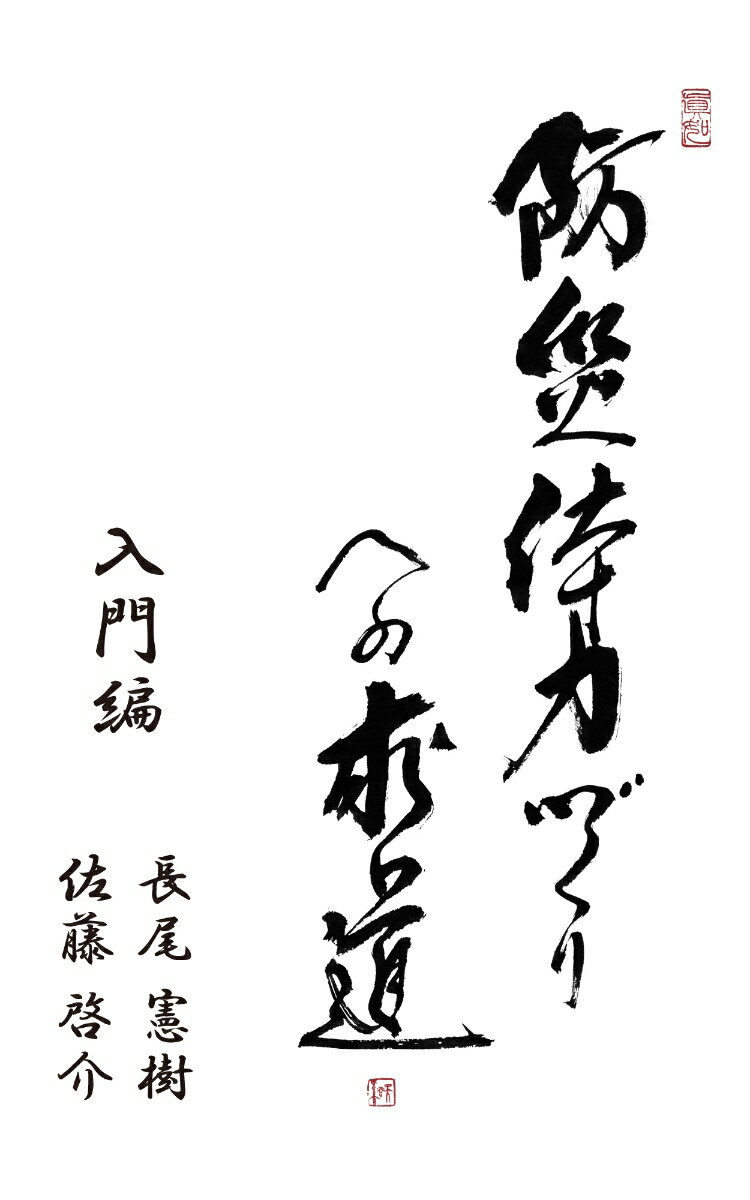 防災体力づくり
への求道
入門編
長尾 憲樹
佐藤 啓介